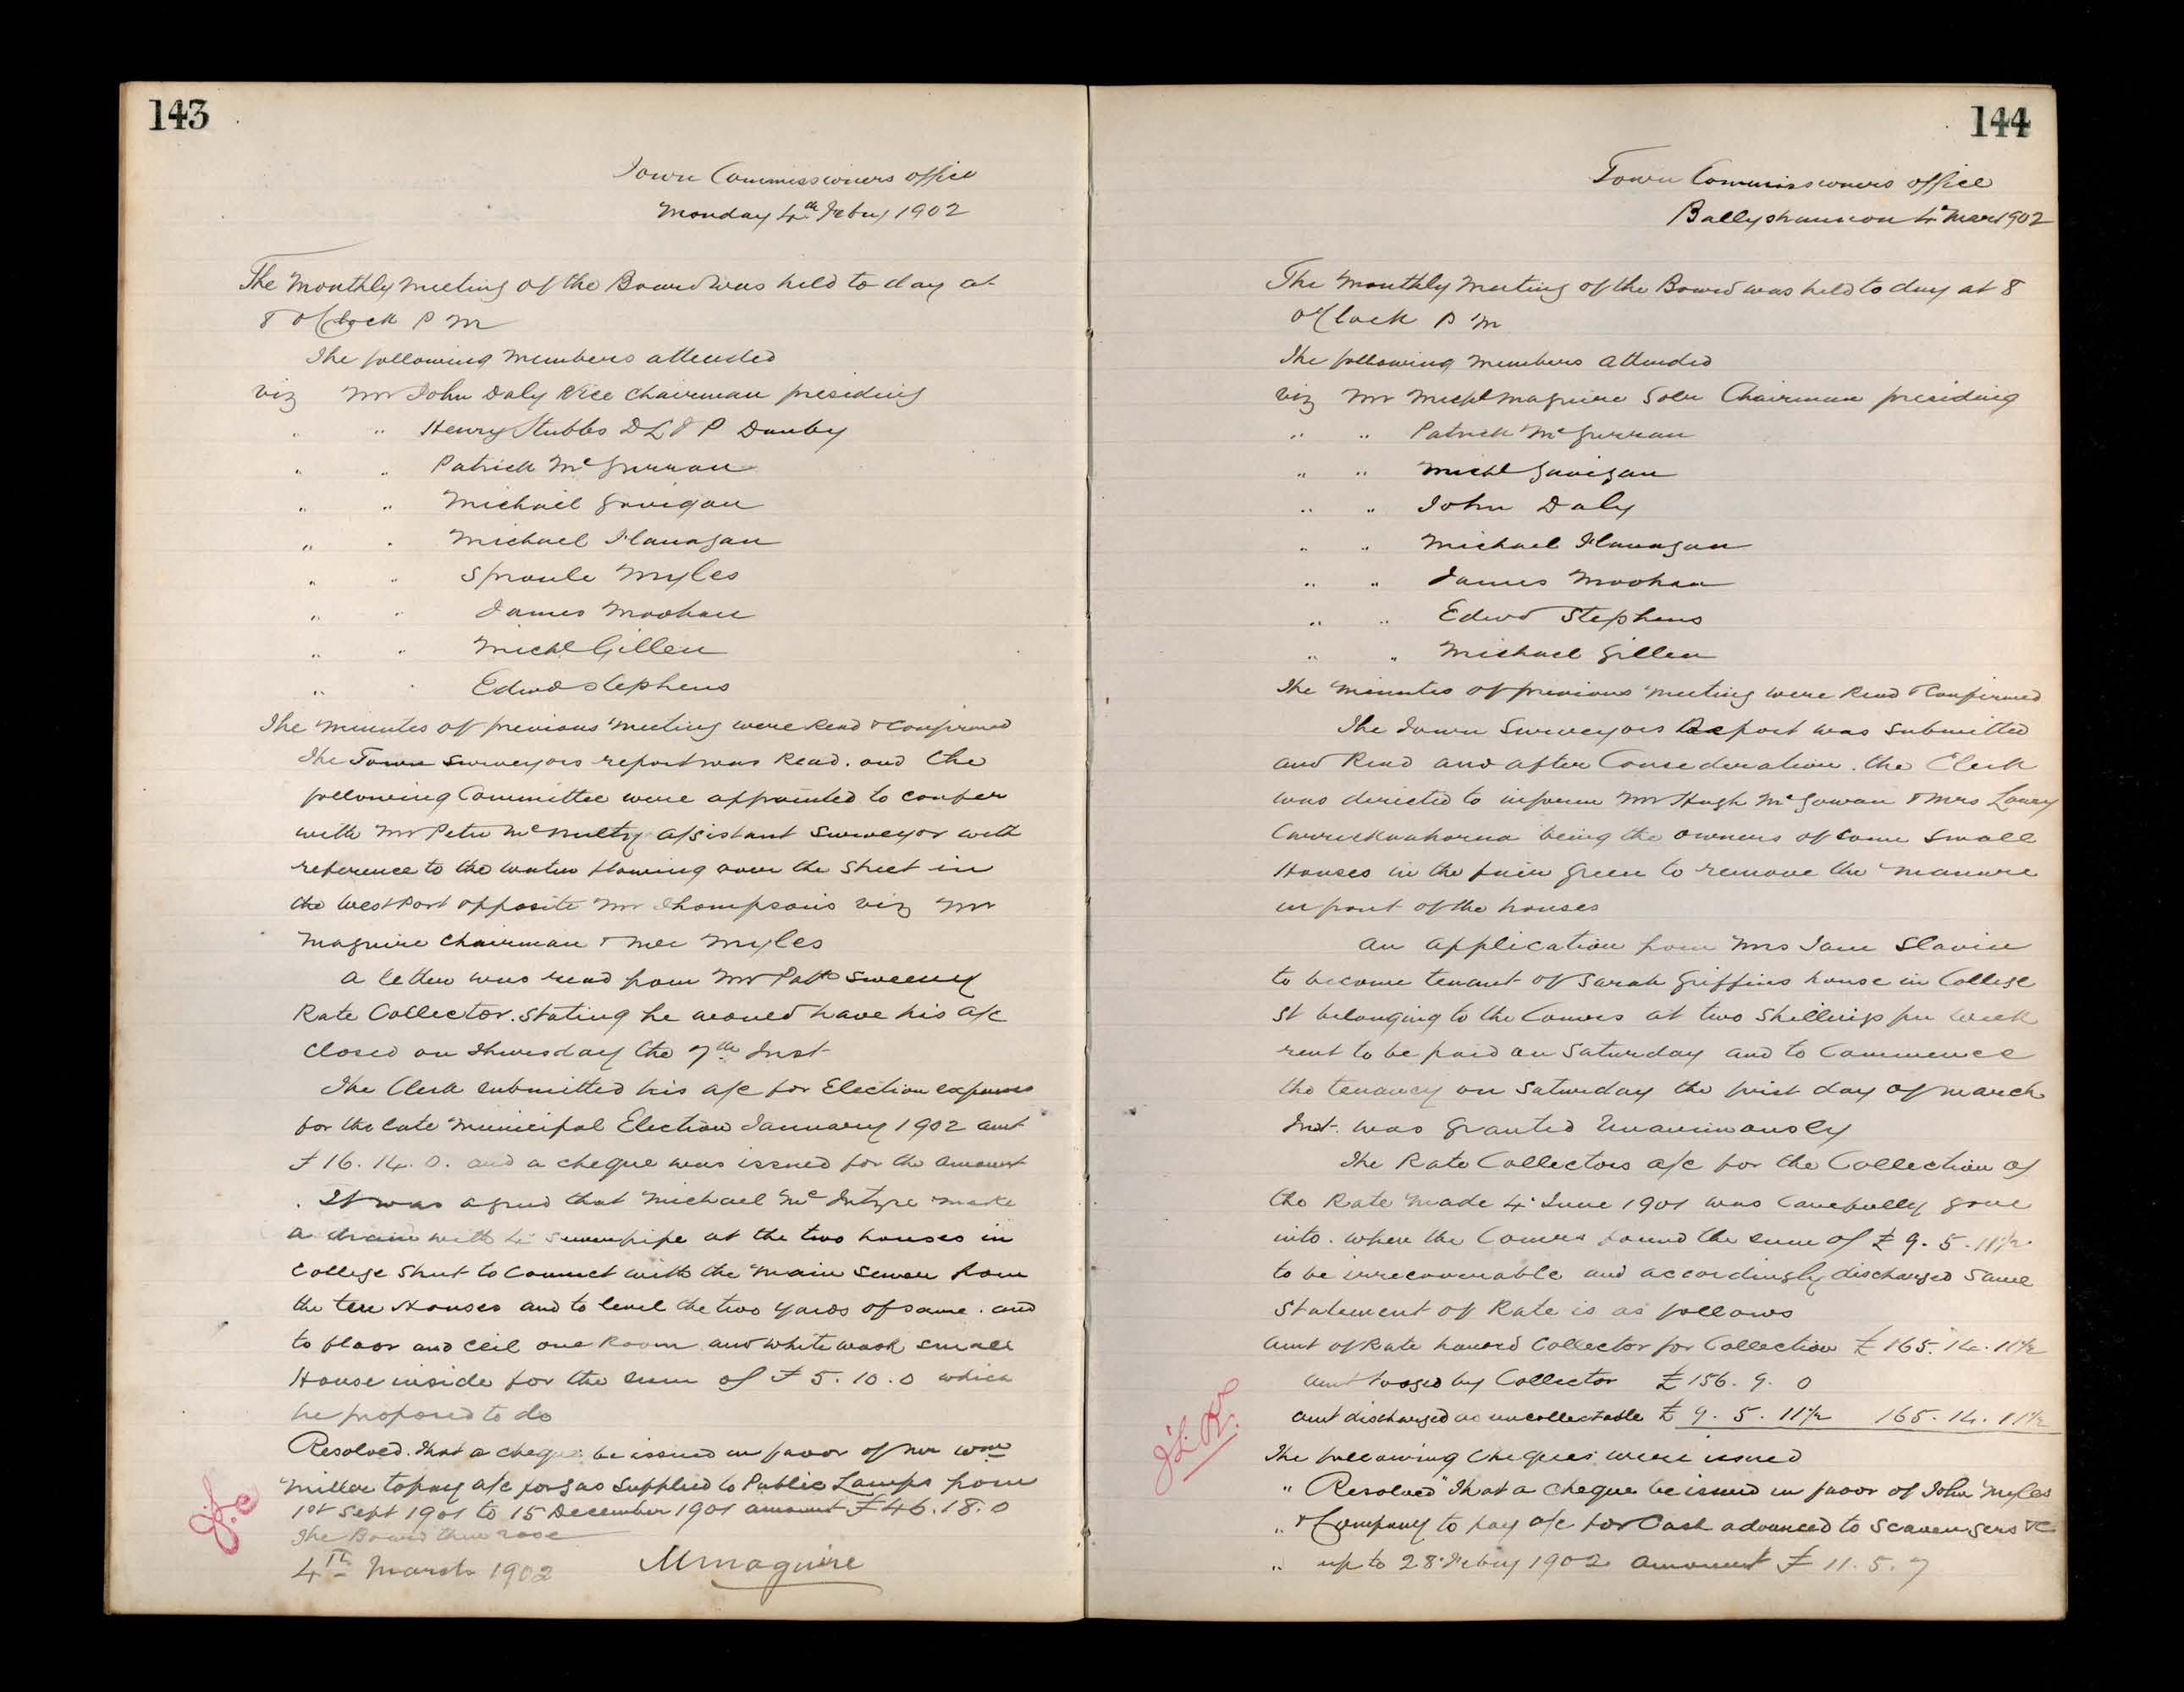 143
Town Commissioners office
Monday 4th Febuy 1902
The Monthly Meeting of the Board was held to day at
8 o'Clock P M
The following Members attended
viz Mr John Daly Vice Chairman presiding
" " Henry Stubbs D L J P Danby
" " Patrick McGurran
" " Michael Gavigan
" " Michael Flanagan
" " Sproule Myles
" " James Moohan
" " Michl Gillen
" " Edwd Stephens
The Minutes of previous Meeting were Read & Confirmed
The Town Surveyors report was Read. and the
following Committee were appointed to confer
with Mr Peter McNulty assistant Surveyor with
reference to the water flowing over the Street in
the West Port opposite Mr Thompsons viz Mr
Maguire Chairman & Mr Myles
A letter was read from Mr Patk Sweeny
Rate Collector. Stating he would have his a/c
closed on Thursday the 7th Inst
The Clerk submitted his a/c for Election expenses
for the late Municipal Election January 1902 amt
£16.14.0. and a cheque was issued for the amount
. It was agreed that Michael McIntyre make
a drain with 4" Sewer pipe at the two houses in
College Street to Connect with the Main Sewer from
the ten Houses and to level the two yards of same. and
to floor and ceil one Room and whitewash small
House inside for the sum of £5.10.0 which
he proposed to do
Resolved. That a cheque be issued in favor of Mr Wm
Miller to pay a/c for gas Supplied to Public Lamps from
1st Sept 1901 to 15 December 1901 amount £46.18.0
The Board then rose
4th March 1902 M Maguire
144
Town Commissioners office
Ballyshannon 4 Mar 1902
The Monthly Meeting of the Board was held to day at 8
o'Clock P M
The following Members attended
viz Mr Michl Maguire Solr Chairman presiding
" " Patrick McGurran
" " Michl Gavigan
" " John Daly
" " Michael Flanagan
" " James Moohan
" " Edwd Stephens
" " Michael Gillen
The Minutes of previous Meeting were Read & Confirmed
The Town Surveyors Report was submitted
and Read and after Consederation. the Clerk
was directed to inform Mr Hugh McGowan & Mrs Lowry
Carricknahorna being the owners of some small
Houses in the fair Green to remove the Manure
in front of the houses
An application from Mrs Jane Slavin
to become tenant of Sarah Griffins house in College
St belonging to the Comrs at two Shillings per week
rent to be paid on Saturday and to Commence
the tenancy on Saturday the first day of March
Inst. was granted Unanimously
The Rate Collectors a/c for the Collection of
the Rate Made 4 June 1901 was Carefully gone
into. when the Comrs found the sum of £9.5.11½
to be irrecoverable and accordingly discharged Same
Statement of Rate is as follows
Amt of Rate handed Collector for Collection £165.14.11½
Amt lodged by Collector £156.9.0
Amt discharged as uncollectable £9.5.11½ 165.14.11½
The following Cheques were issued
" Resolved" That a cheque be issued in favor of John Myles
" & Company to pay a/c for Cash advanced to Scavengers &c
" up to 28 Febuy 1902 amount £11.5.7